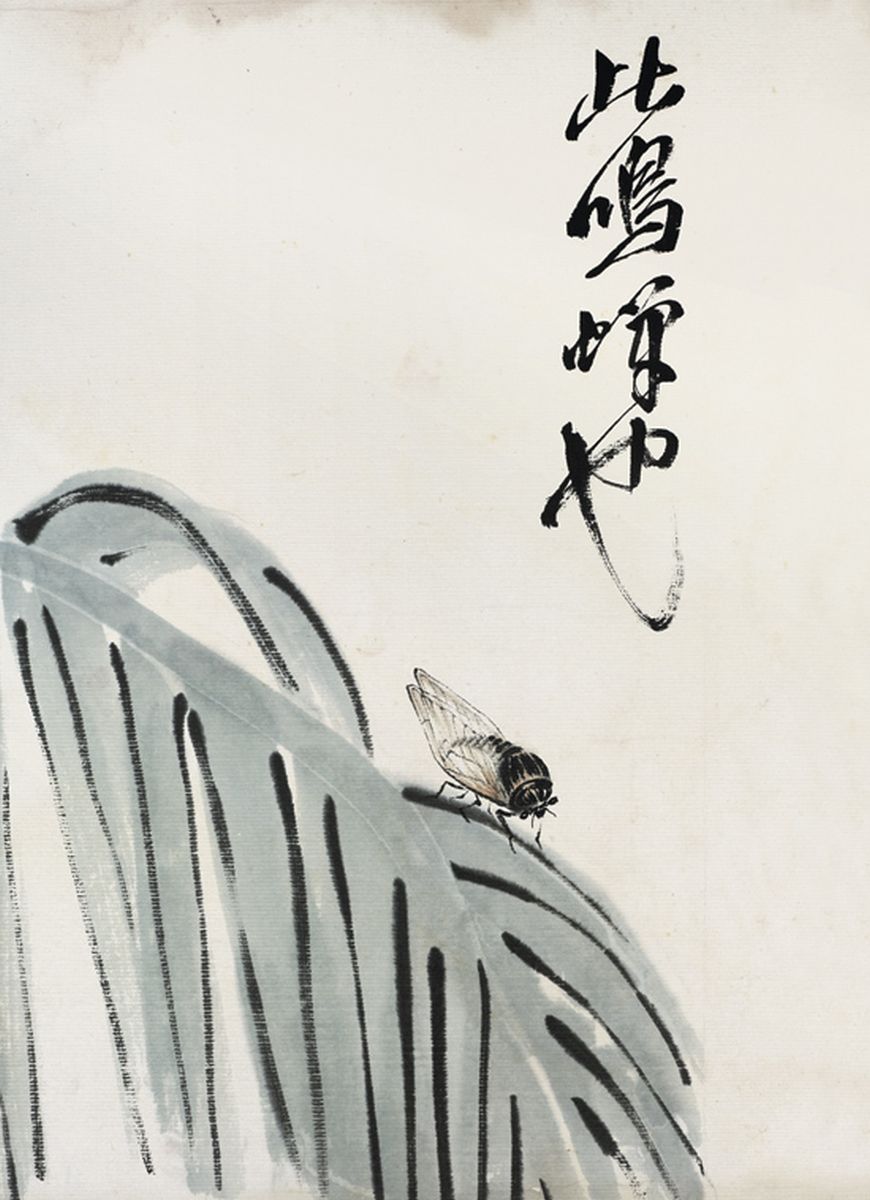 此鳴蟬也